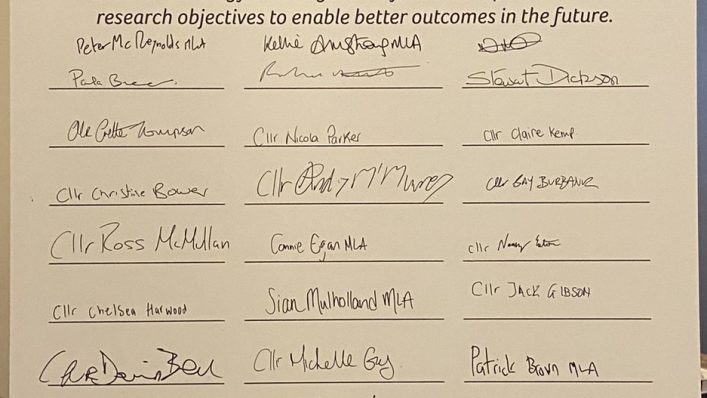 research objectives to enable better outcomes in the future.
Peter McReynolds MLA Kellie Armstrong MLA
Paula Stewart Dickson
Thompson Cllr Nicola Parker Cllr Claire Kemp
Cllr Christine Bower Cllr Andy McMurray Cllr GAY BURBANK
Cllr Ross McMullan Connie Egan MLA Cllr Nancy Eaton
Cllr Chelsea Harwood Sian Mulholland MLA Cllr JACK GIBSON
Cllr Michelle Guy Patrick Brown MLA